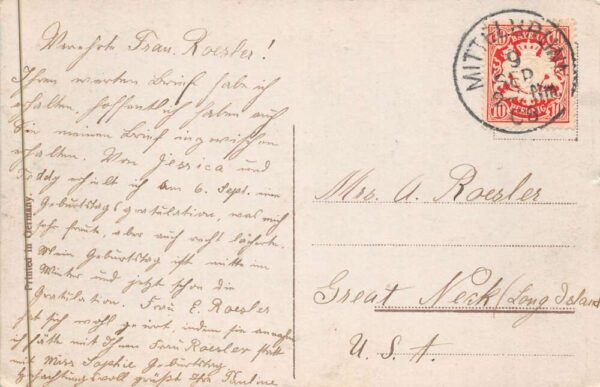 Verehrte Frau Roesler!
Ihren werten Brief habe ich
erhalten, hoffentlich haben auch
Sie meinen Brief inzwischen
erhalten. Von Jessica und
Teddy erhielt ich am 6. Sept. eine
Geburtstagsgratulation, was mich
sehr freute, aber auch recht lächerte.
Mein Geburtstag ist mitte im
Winter und jetzt schon die
Gratulation. Frau E. Roesler
hat sich wohl geirrt, indem sie
ich hätte mit Ihnen Frau Roesler statt
mit Miss Sophie Geburtstag
Hochachtungsvoll grüßt Pauline
Printed in Germany.
MITTE
9
SEP
Nm.
BAYERN
10 PFENNIG 10
Mrs. A. Roesler
Great Neck (Long Island
U. S. A.